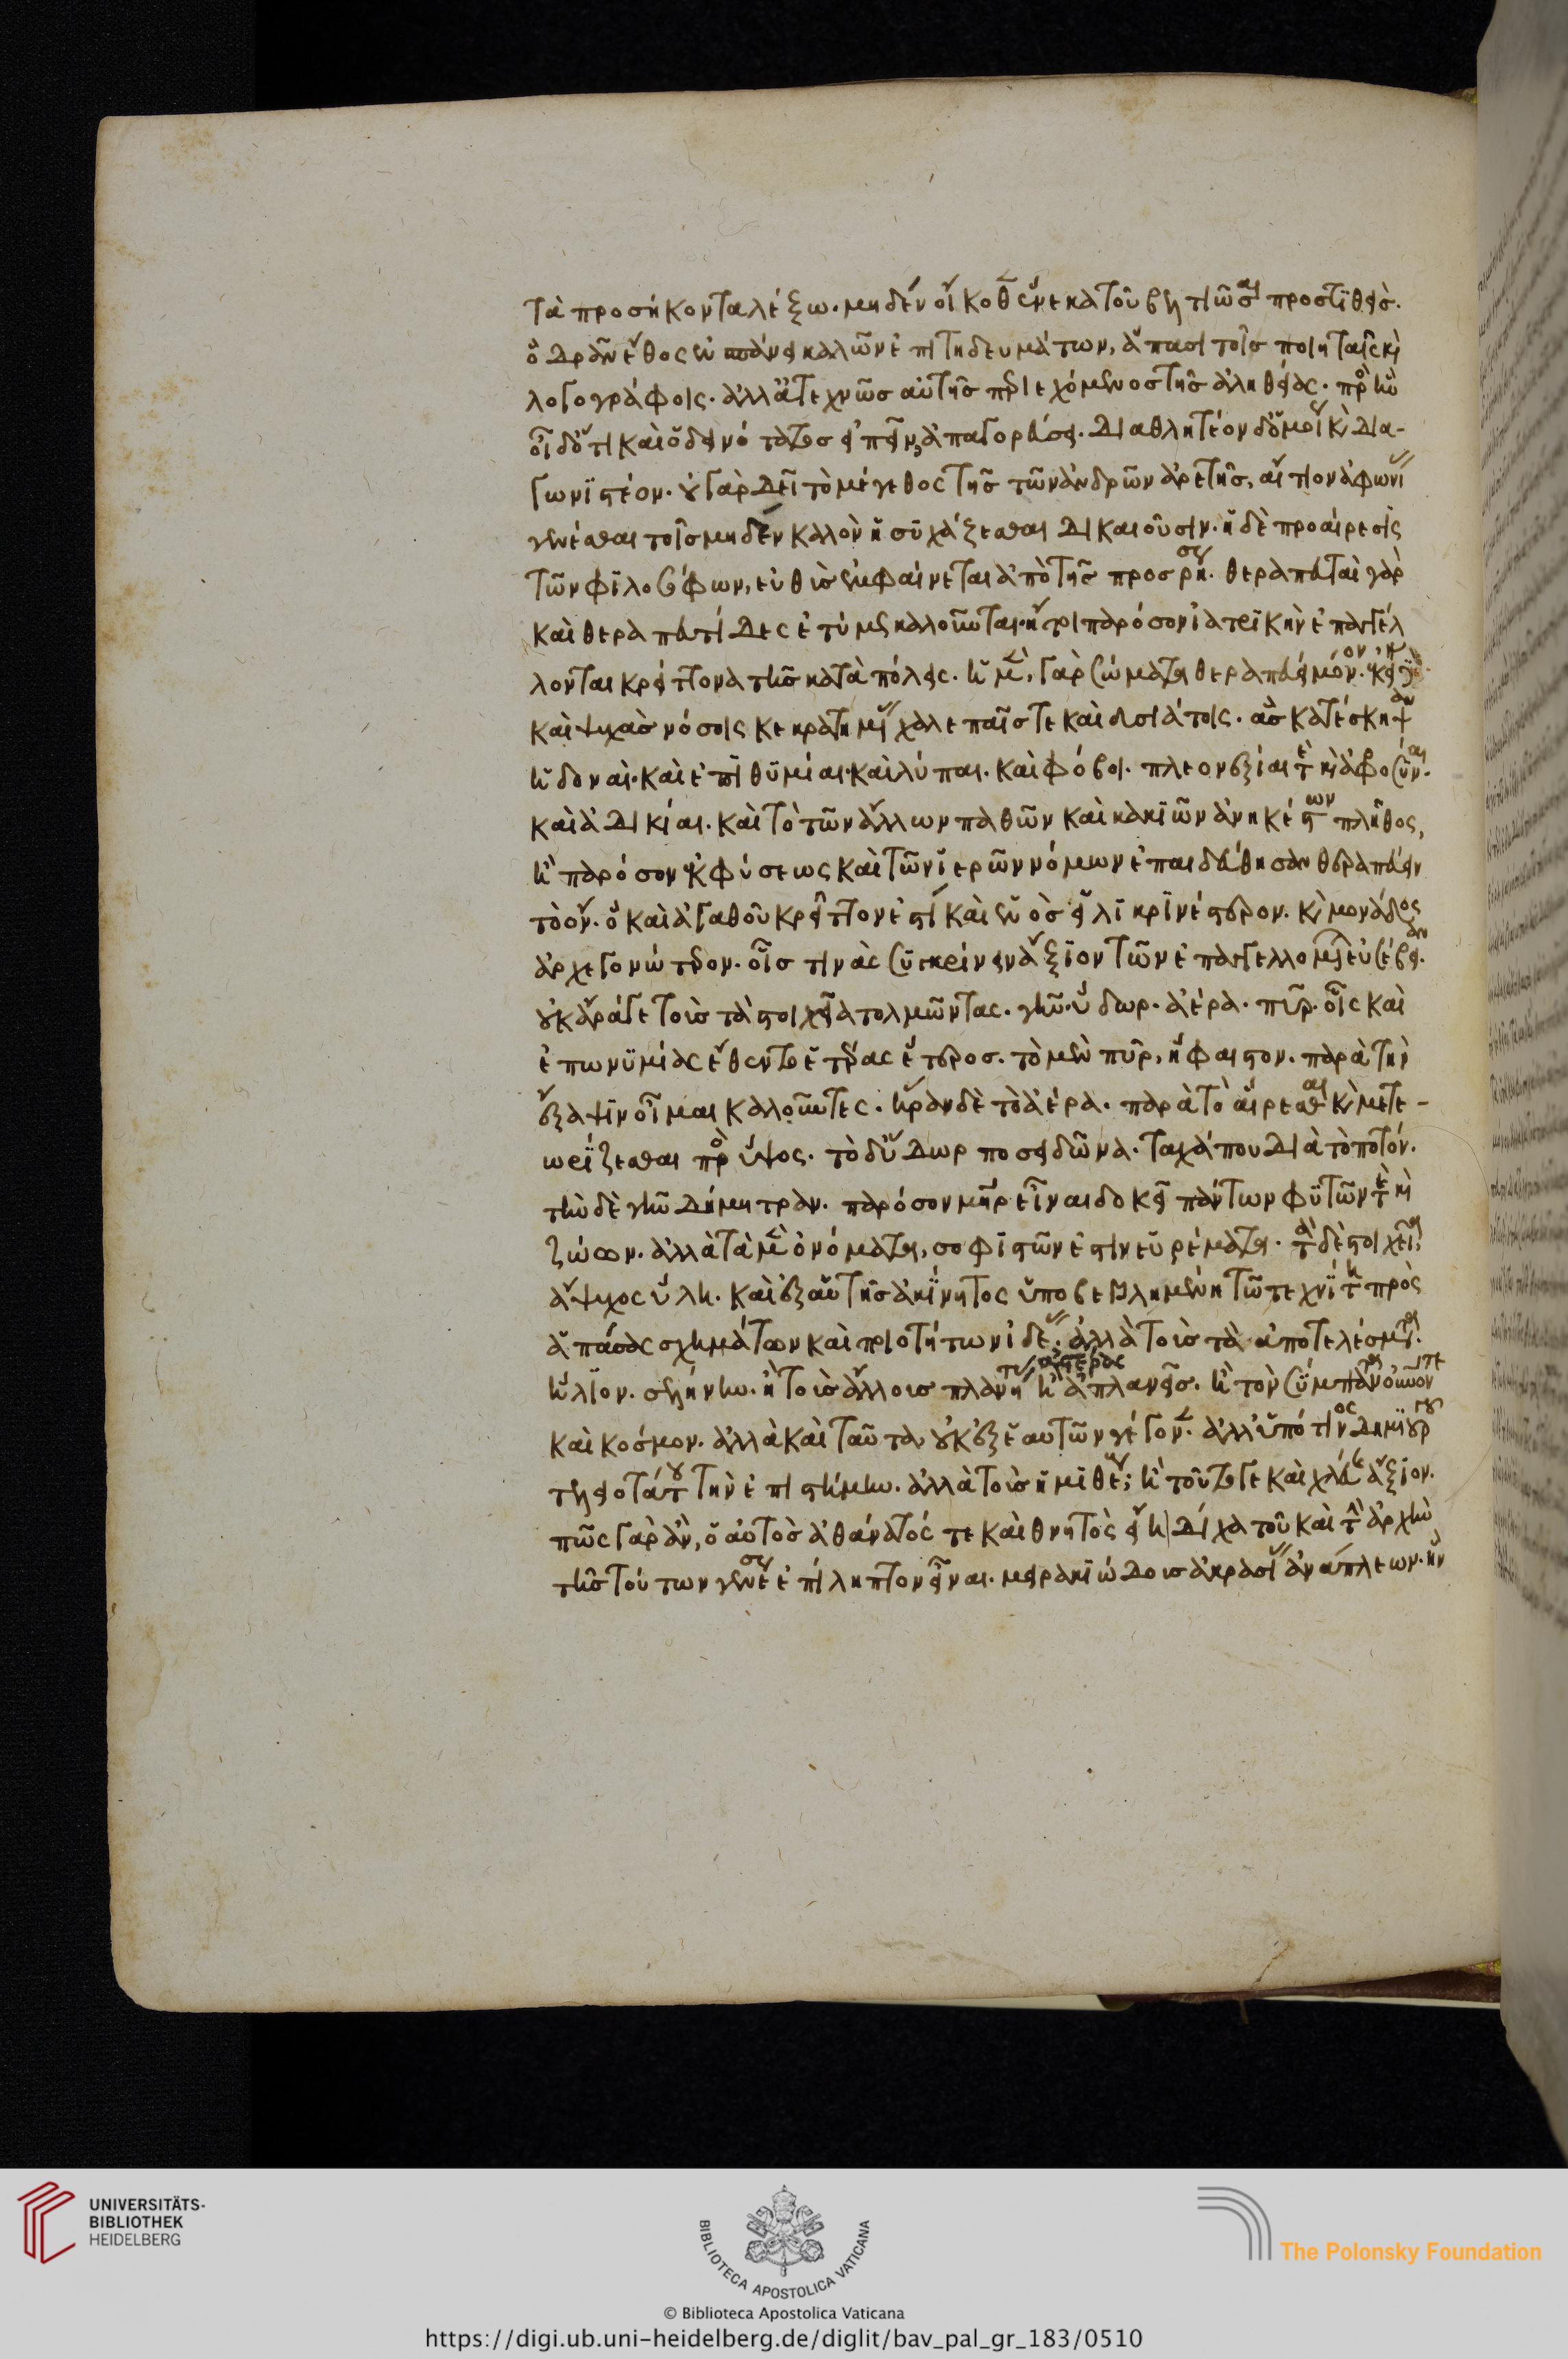 τὰ προσήκοντα λέξω. μηδὲν οἴκοθεν ἕνεκα τοῦ βελτιῶσαι προστιθείς.
ὃ δρᾶν ἔθος ἐν σπάνει καλῶν ἐπιτηδευμάτων, ἅπασι τοῖς ποιηταῖς καὶ
λογογράφοις. ἀλλ' ἀτεχνῶς αὐτῆς περιεχόμενος τῆς ἀληθείας. πρὸς ἣν
οἶδ' ὅτι καὶ ὁ δεινότατος εἰπεῖν, ἀπαγορεύσει. διαθλητέον δ' ὅμως καὶ δια-
γωνιστέον. οὐ γὰρ δεῖ τὸ μέγεθος τῆς τῶν ἀνδρῶν ἀρετῆς, αἴτιον ἀφωνίας
γενέσθαι τοῖς μηδὲν καλὸν ἡσυχάζεσθαι δικαιοῦσιν. ἡ δὲ προαίρεσις
τῶν φιλοσόφων, εὐθὺς ἐμφαίνεται ἀπὸ τῆς προσρήσεως. θεραπευταὶ γὰρ
καὶ θεραπευτρίδες ἐτύμως καλοῦνται. ἤτοι παρόσον ἰατρικὴν ἐπαγγέλ
λονται κρείττονα τῆς κατὰ πόλεις. ἡ μὲν γὰρ σώματα θεραπεύει μόνον. ἐκείνη δὲ
καὶ ψυχὰς νόσοις κεκρατημένας χαλεπαῖς τε καὶ δυσιάτοις. ἃς κατέσκηψαν
ἡδοναὶ. καὶ ἐπιθυμίαι. καὶ λύπαι. καὶ φόβοι. πλεονεξίαι τὲ καὶ ἀφροσύναι.
καὶ ἀδικίαι. καὶ τὸ τῶν ἄλλων παθῶν καὶ κακιῶν ἀνηκέστων πλῆθος,
ἢ παρόσον ἐκ φύσεως καὶ τῶν ἱερῶν νόμων ἐπαιδεύθησαν θεραπεύειν
τὸ ὄν. ὃ καὶ ἀγαθοῦ κρεῖττον ἐστὶ καὶ ἑνὸς εἰλικρινέστερον. καὶ μονάδος
ἀρχεγονώτερον. οἷς τίνας συγκρίνειν ἄξιον τῶν ἐπαγγελλομένων εὐσέβειαν.
οὐκ ἄρά γε τοὺς τὰ στοιχεῖα τολμῶντας. γῆν. ὕδωρ. ἀέρα. πῦρ. οἷς καὶ
ἐπωνυμίας ἔθεντο ἑτέρας ἕτεροι. τὸ μὲν πῦρ, ἥφαιστον. παρὰ τὴν
ἔξαψιν οἶμαι καλοῦντες. ἥραν δὲ τὸ ἀέρα. παρὰ τὸ αἵρεσθαι καὶ μετε-
ωρίζεσθαι πρὸς ὕψος. τὸ δ' ὕδωρ ποσειδῶνα. τάχά που διὰ τὸ ποτόν.
τὴν δὲ γῆν δήμητραν. παρόσον μήτηρ εἶναι δοκεῖ πάντων φυτῶν τὲ καὶ
ζώων. ἀλλὰ τὰ μὲν ὀνόματα, σοφιστῶν ἐστιν εὑρέματα. τὰ δὲ στοιχεῖα,
ἄψυχος ὕλη. καὶ ἐξ αὑτῆς ἀκίνητος ὑποβεβλημένη τῷ τεχνίτη πρὸς
ἁπάσας σχημάτων καὶ ποιοτήτων ἰδέας. ἀλλὰ τοὺς τὰ ἀποτελέσματα.
ἥλιον. σελήνην. ἢ τοὺς ἄλλους πλανήτας ἀστέρας ἢ ἀπλανεῖς. ἢ τὸν σύμπαντα οὐρανόν τε
καὶ κόσμον. ἀλλὰ καὶ ταῦτα, οὐκ ἐξ ἑαυτῶν γέγονεν. ἀλλ' ὑπό τινος δημιουργοῦ
τελειοτάτου τὴν ἐπιστήμην. ἀλλὰ τοὺς ἡμιθέους; ἢ τοῦτό γε καὶ χλεύης ἄξιον.
πῶς γὰρ ἂν, ὁ αὐτὸς ἀθάνατός τε καὶ θνητὸς εἴη δίχα τοῦ καὶ τὴν ἀρχὴν
τῆς τούτων γενέσεως ἐπίληπτον εἶναι. μειρακιώδους ἀκρασίας ἀνάπλεων. ἣν
UNIVERSITÄTS-
BIBLIOTHEK
HEIDELBERG
BIBLIOTECA APOSTOLICA VATICANA
The Polonsky Foundation
© Biblioteca Apostolica Vaticana
https://digi.ub.uni-heidelberg.de/diglit/bav_pal_gr_183/0510